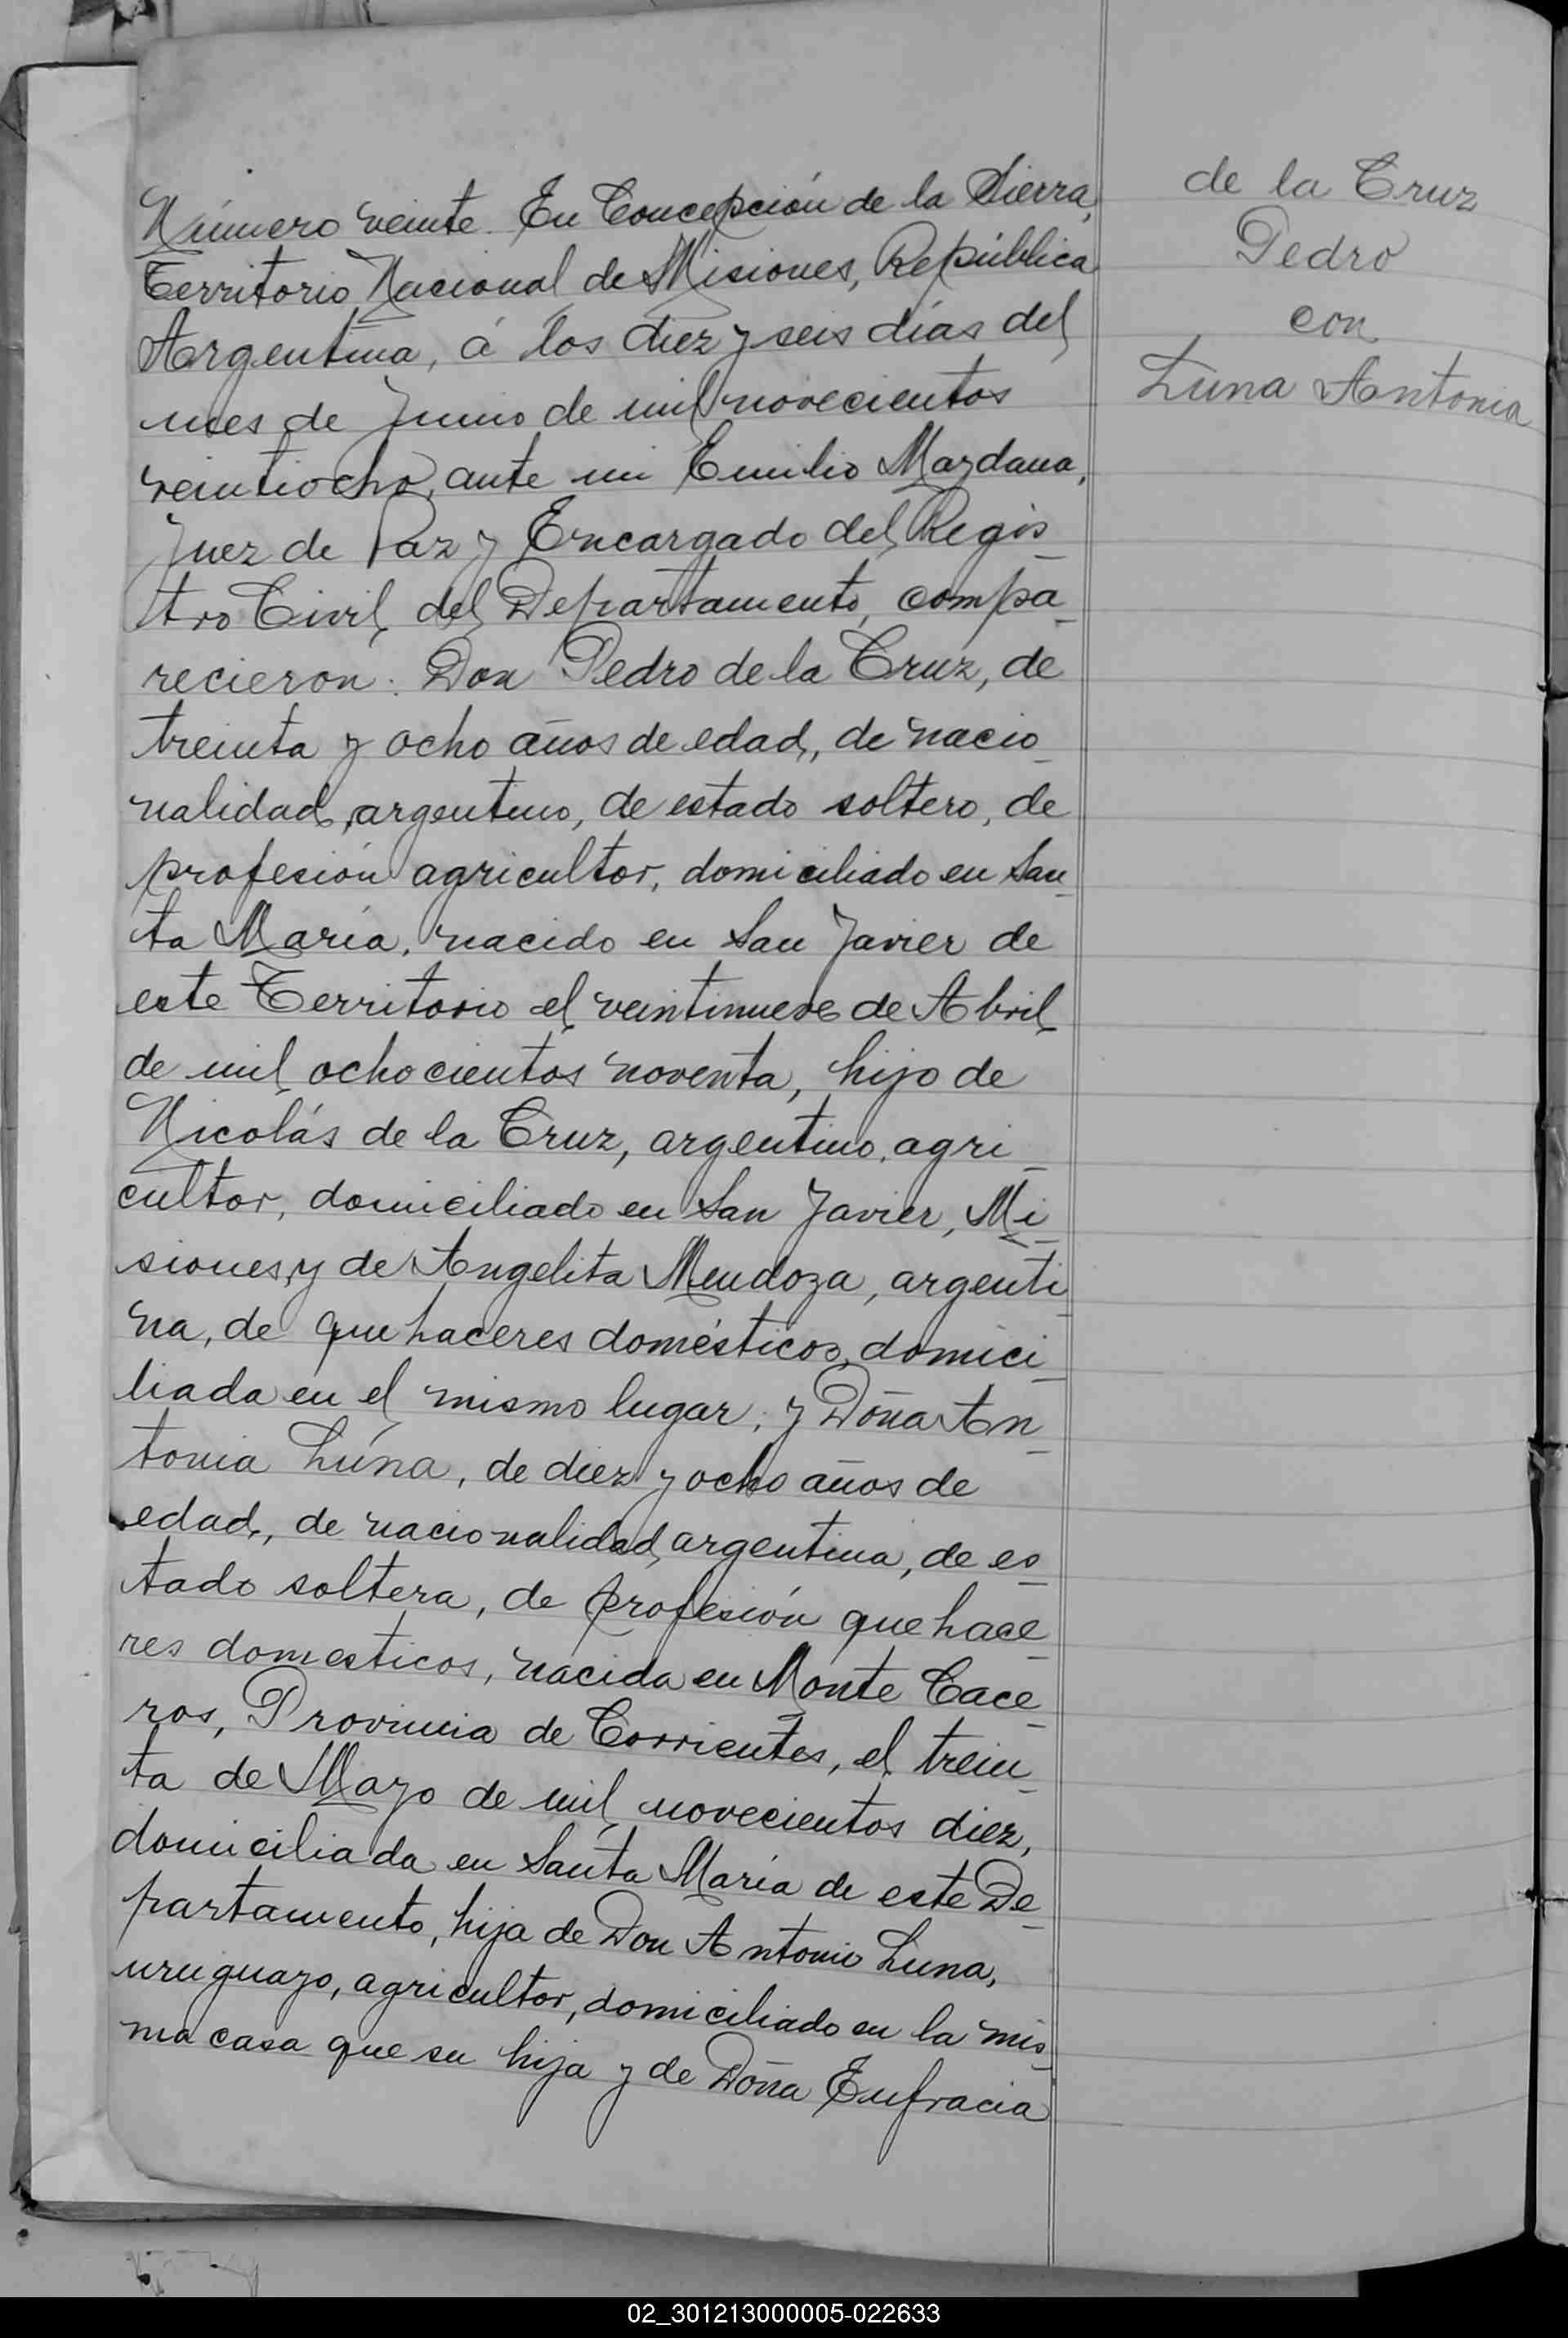 Número veinte. En Concepción de la Sierra,
Territorio Nacional de Misiones, República
Argentina, á los diez y seis días del
mes de Junio de mil novecientos
veintiocho, ante mi Emilio Maydana,
Juez de Paz y Encargado del Regis-
tro Civil del Departamento, compa-
recieron: Don Pedro de la Cruz, de
treinta y ocho años de edad, de nacio-
nalidad argentino, de estado soltero, de
profesión agricultor, domiciliado en San-
ta María, nacido en San Javier de
este Territorio el veintinueve de Abril
de mil ochocientos noventa, hijo de
Nicolás de la Cruz, argentino, agri-
cultor, domiciliado en San Javier, Mi-
siones, y de Angelita Mendoza, argenti-
na, de quehaceres domésticos, domici-
liada en el mismo lugar; y Doña An-
tonia Lúna, de diez y ocho años de
edad, de nacionalidad argentina, de es-
tado soltera, de profesión quehace-
res domesticos, nacida en Monte Cace-
ros, Provincia de Corrientes, el trein-
ta de Mayo de mil novecientos diez,
domiciliada en Santa María de este De-
partamento, hija de Don Antonio Luna,
uruguayo, agricultor, domiciliado en la mis-
ma casa que su hija y de Doña Eufracia
de la Cruz
Pedro
con
Luna Antonia
02_301213000005-022633